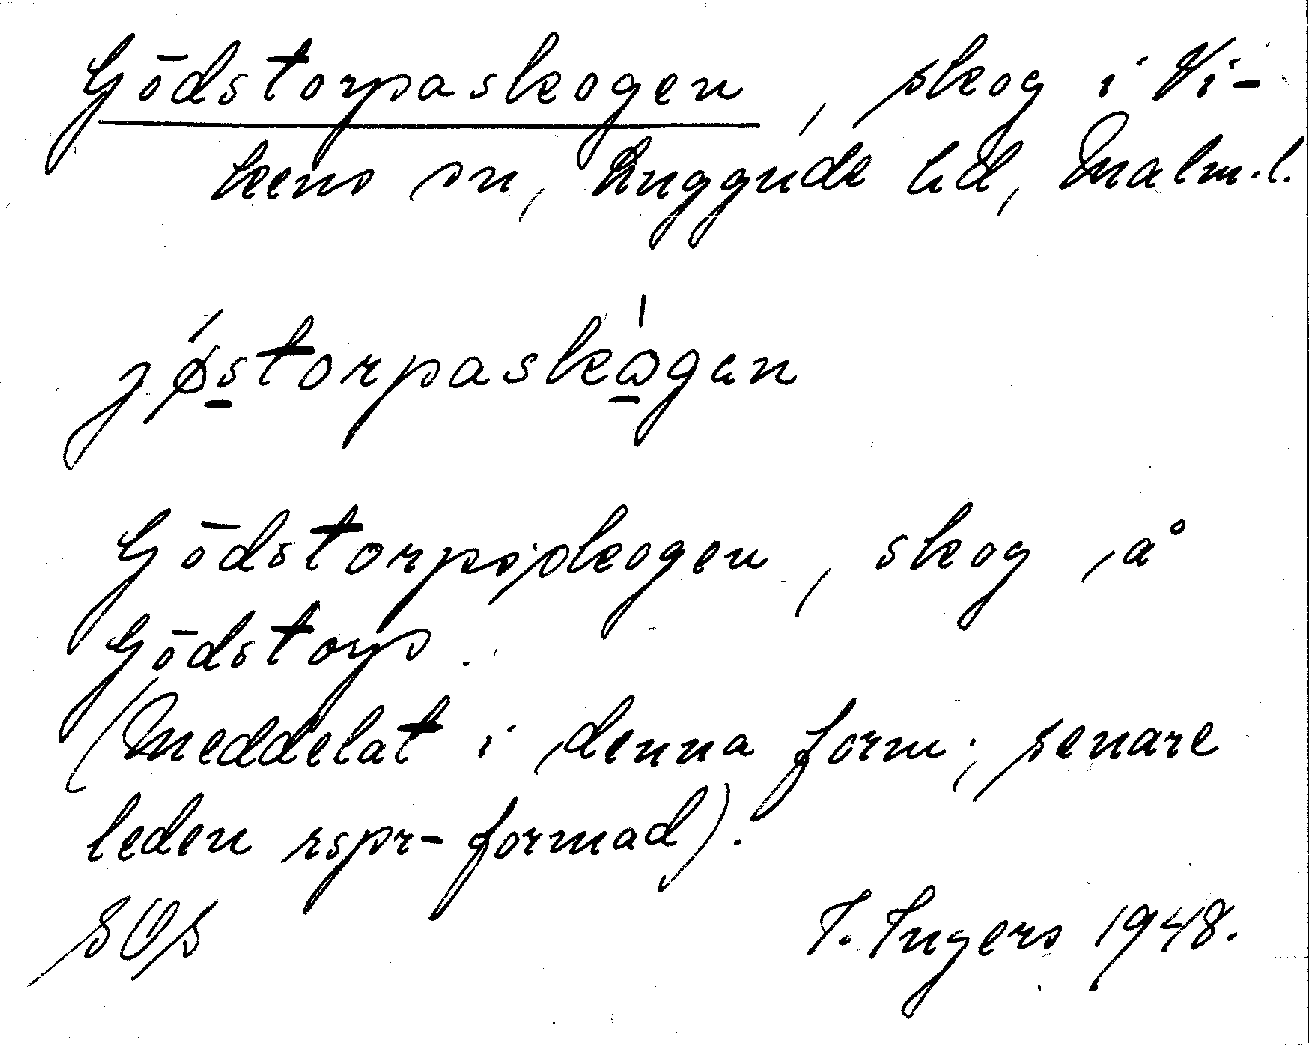 Gödstorpaskogen, skog i Vi-
kens sn, Luggude hd, Malm.l.
jø̀storpaskògan
Gödstorpsskogen, skog å
Gödstorp.
(Meddelat i denna form; senare
leden rspr-formad).
SOS I. Ingers 1948.